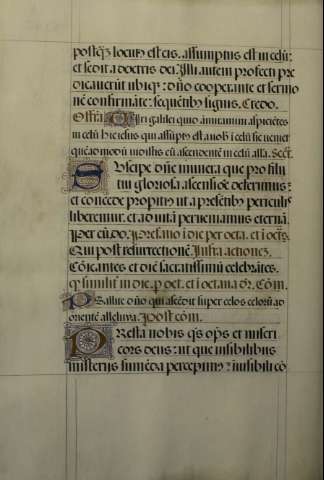 postq̃ʒ locutꝰ est eis. assumptus est in celũ:
et sedit a dextris dei. Illi autem profecti pre
dicauerũt ubiqʒ: dño cooperante et sermo
nẽ confirmãte: sequẽtibꝰ signis. Credo.
Offṙa Uiri galilei quid admiramini aspiciẽtes
in celũ hic iesus qui assũptꝰ est a nob̃ ĩ celũ sic ueniet
quẽadmodũ uidistis eũ ascendentẽ in celũ alla. Secr̃.
Suscipe dñe munera que pro filii
tui gloriosa ascensiõe deferimus:
et concede propitiꝰ ut a presẽtibꝰ periculis
liberemur. et ad uitã perueniamus eternã.
Per eũdẽ. Prefatio dicitur per octã. et ĩ octã.
Qui post resurrectionẽ. Infra actionẽ.
Cõicantes et diẽ sacratissimũ celebrãtes.
Psallite dño qui ascẽdit super celos celorũ ad
orientẽ alleluya. Post cõm.
Presta nobis q̃s õps et miseri
cors deus: ut que uisibilibus
misteriis sumẽda percepimꝰ: inuisibili cõ